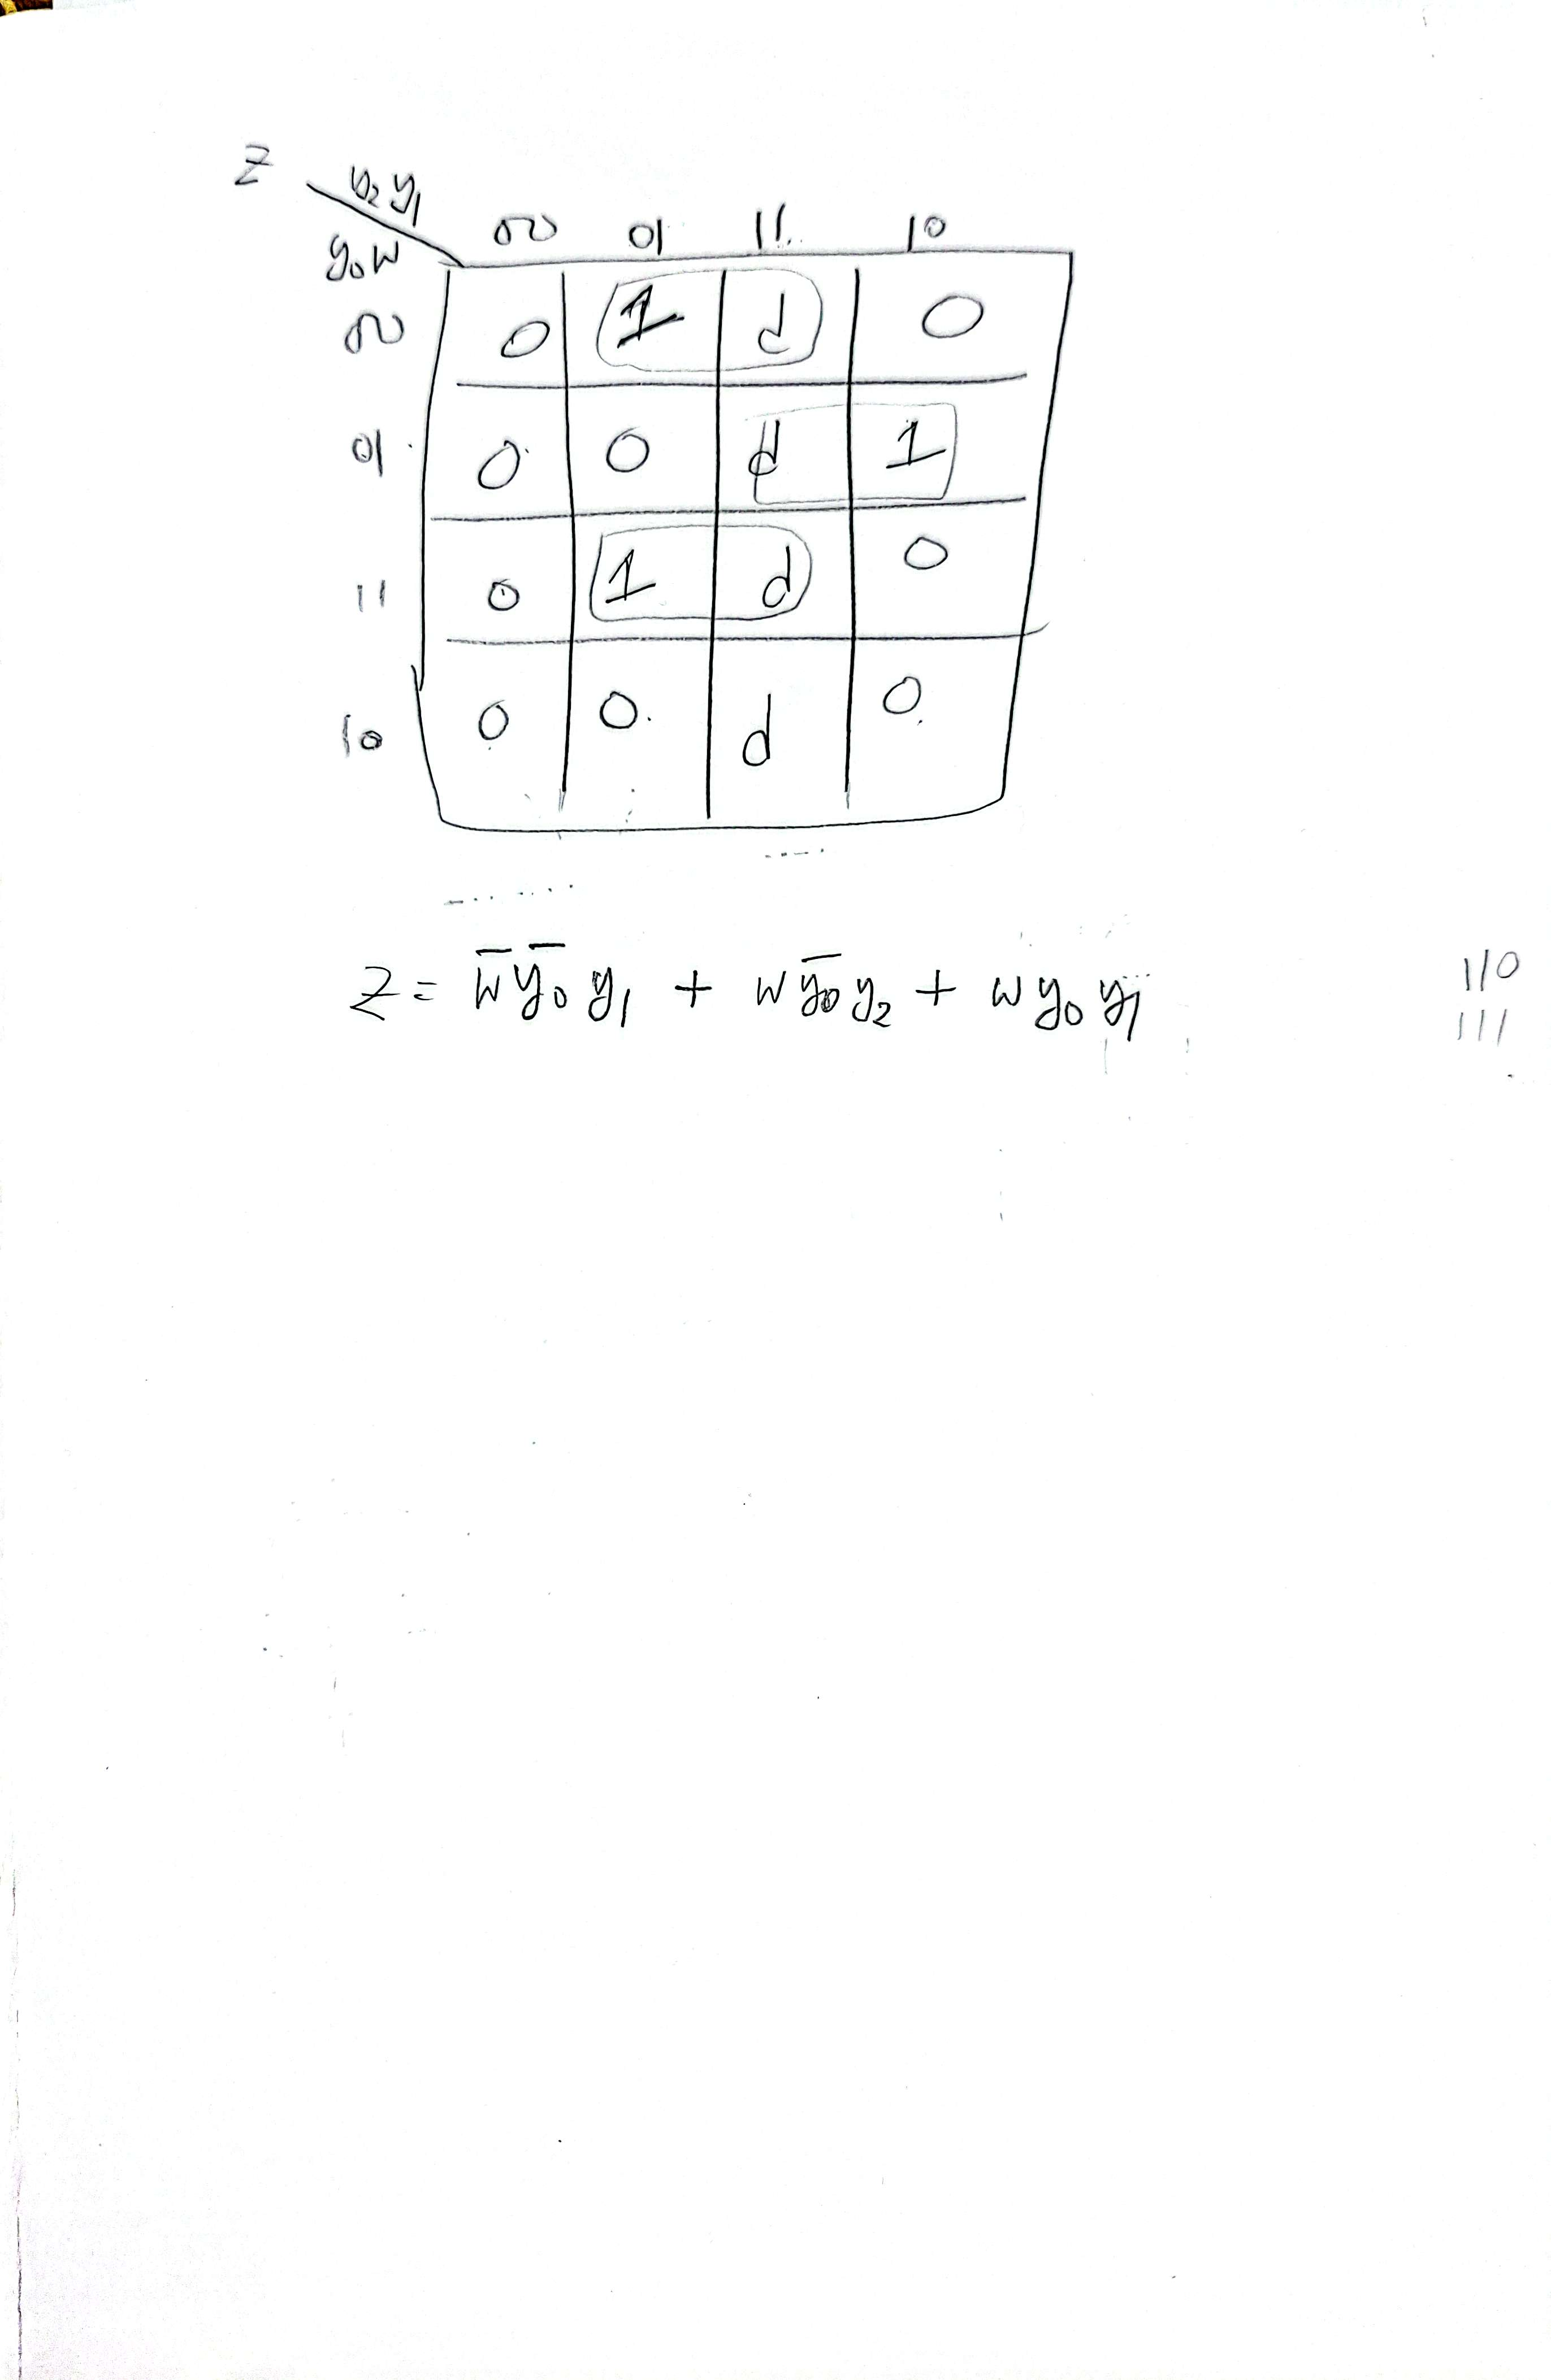 Z y₂y₁
y₀w 00 01 11 10
00 0 1 d 0
01 0 0 d 1
11 0 1 d 0
10 0 0 d 0
Z = w̅ y̅₀ y₁ + w y̅₀ y₂ + w y₀ y₁
110
111